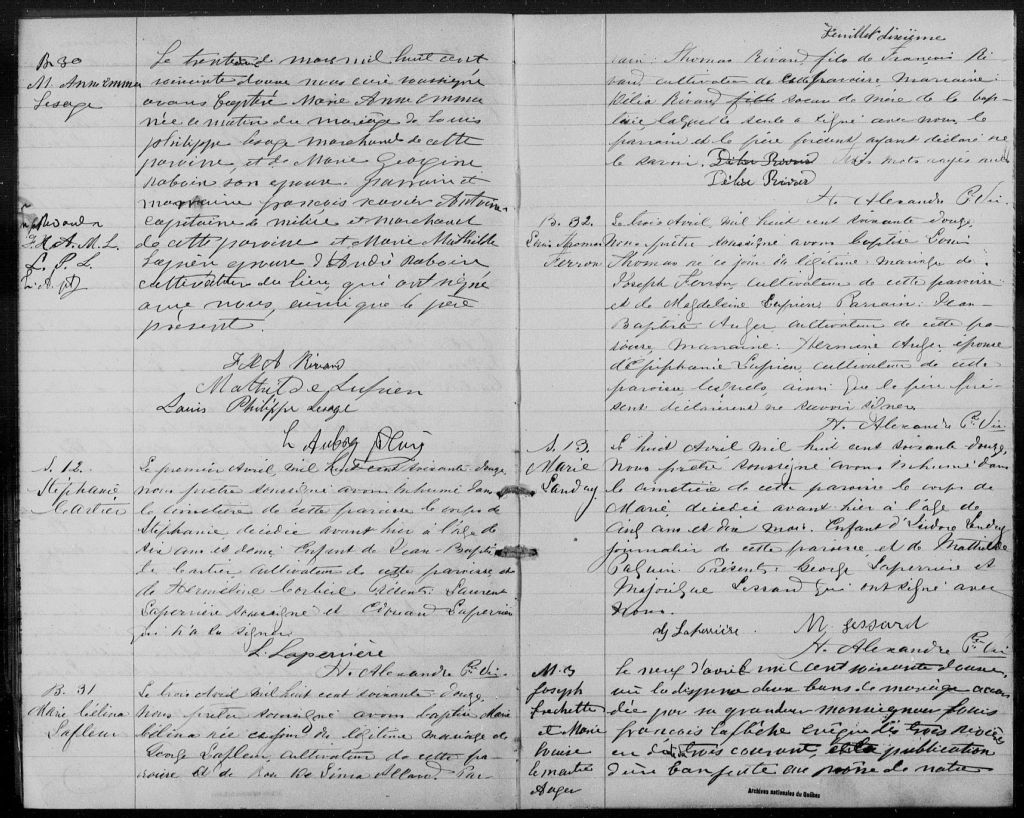 B 30
M Anna Emma
Lesage
Le trente de mars mil huit cent
soixante douze nous curé soussigné
avons baptisé Marie Anne Emma
née ce matin du mariage de Louis
Philippe Lesage marchand de cette
paroisse et de Marie Georgine
Raboin son épouse. Parrain et
marraine françois xavier Antoine
capitaine de milice et marchand
de cette paroisse et Marie Mathilde
Lupien épouse d'André Raboin
cultivateur du lieu, qui ont signé
avec nous, ainsi que le père
présent.
F. X. A. M. L.
L. P. L.
F X A Rivard
Mathilde Lupien
Louis Philippe Lesage
S. 12.
Stéphanie
Carlier
Le premier Avril mil huit cent soixante douze,
nous prêtre soussigné avons inhumé dans
le cimetière de cette paroisse le corps de
Stéphanie décédée avant hier à l'âge de
six ans et demi Enfant de Jean-Baptis
te Carlier cultivateur de cette paroisse et
de Hermeline Corbeil Présents: Laurent
Laperrière soussigné et Edouard Laperrière
qui n'a su signer.
L. Laperrière
H. Alexandre Ptre Vic.
B. 31
Marie Célina
Lafleur
Le trois Avril mil huit cent soixante douze,
Nous prêtre soussigné avons baptisé Marie
Célina née ce jour du légitime mariage de
George Lafleur, cultivateur de cette pa-
roisse et de Allard. Par-
Feuillet dixième
rain: Thomas Rivard fils de François Ri
vard cultivateur de cette paroisse Marraine:
Délia Rivard fille soeur de mère de la bap-
tisée, laquelle seule a signé avec nous, le
parrain et le père présent, ayant déclaré ne
le savoir. Délia Rivard mots rayés nuls
Délia Rivard
H. Alexandre Ptre Vic.
B. 32.
Louis Thomas
Ferron
Le trois Avril, mil huit cent soixante douze,
Nous prêtre soussigné avons baptisé Louis
Thomas né ce jour du légitime mariage de
Joseph Ferron, cultivateur de cette paroisse
et de Magdeleine Lupien Parrain: Jean-
Baptiste Auger, cultivateur de cette pa-
roisse, marraine: Hermine Auger, épouse
d'Epiphanie Lupien, cultivateur de cette
paroisse, lesquels, ainsi que le père pré-
sent déclarèrent ne savoir signer.
H. Alexandre Ptre Vic.
S. 13.
Marie
Landry
Le huit Avril mil huit cent soixante douze,
Nous prêtre soussigné avons inhumé dans
le cimetière de cette paroisse le corps de
Marie, décédée avant hier à l'âge de
cinq ans et dix mois. Enfant d'Isidore Landry
journalier de cette paroisse et de Mathilde
Paquin Présents: George Laperrière et
Majorique Lessard qui ont signé avec
Nous.
G Laperrière. M. Lessard
H. Alexandre Ptre Vic
M. 3
Joseph
Frechette
et Marie
Louise
le maitre
Auger
Le neuf d'avril mil cent soixante douze,
vu la dispense de deux bans de mariage accor
dée par sa grandeur monseigneur Louis
françois Laflèche évêque des trois rivières
en date du trois courant, et la publication
d'un ban faite au prône de notre
Archives nationales du Québec